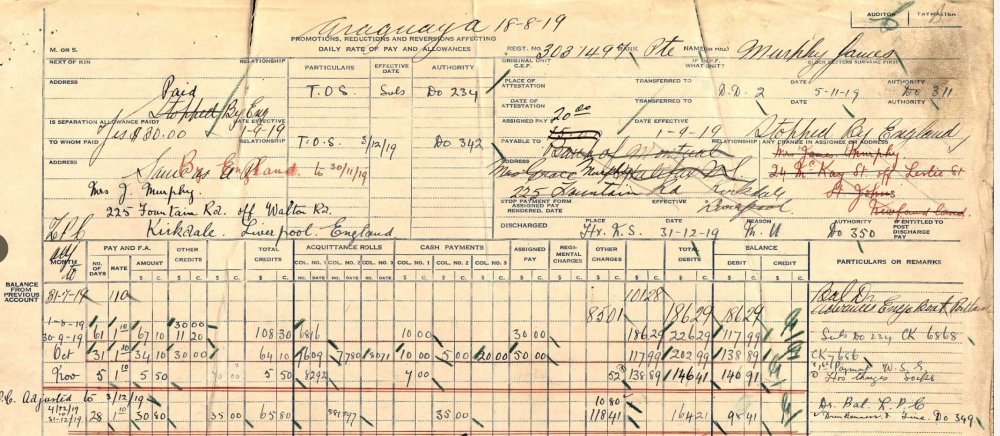 Araguaya 18-8-19
AUDITOR PAYMASTER
PROMOTIONS, REDUCTIONS AND REVERSIONS AFFECTING
DAILY RATE OF PAY AND ALLOWANCES
M. OR S.
REGT. NO. 303149 RANK Pte NAME (IN FULL) Murphy James
BLOCK LETTERS SURNAME FIRST
NEXT OF KIN RELATIONSHIP PARTICULARS EFFECTIVE DATE AUTHORITY
ORIGINAL UNIT C.E.F. IF IN P.F. WHAT UNIT?
ADDRESS
PLACE OF ATTESTATION TRANSFERRED TO DATE AUTHORITY
T.O.S. Subs DO 234
D.D. 2 5-11-19 DO 311
Paid
Stopped By Eng
DATE OF ATTESTATION TRANSFERRED TO DATE AUTHORITY
IS SEPARATION ALLOWANCE PAID? DATE EFFECTIVE
Yes $30.00 1-9-19
ASSIGNED PAY $ 20.00 15.00 DATE EFFECTIVE 1-9-19 Stopped By England
TO WHOM PAID RELATIONSHIP
T.O.S. 3/12/19 DO 342
PAYABLE TO Bank of Montreal RELATIONSHIP ANY CHANGE IN ASSIGNEE OR ADDRESS
By England to 30/11/19
Mrs Grace Murphy Halifax N.S. Mrs James Murphy
ADDRESS
Mrs J. Murphy.
225 Fountain Rd Kirkdale 24 McKay St off Leslie St
225 Fountain Rd. off Walton Rd. Liverpool St Johns
STOP PAYMENT FORM ASSIGNED PAY RENDERED, DATE EFFECTIVE Newfoundland
Kirkdale. Liverpool. England
DISCHARGED PLACE Hx. N.S. DATE 31-12-19 REASON M.U AUTHORITY DO 350 IF ENTITLED TO POST DISCHARGE PAY
L.P.C
MONTH PAY AND F.A. OTHER CREDITS TOTAL CREDITS ACQUITTANCE ROLLS CASH PAYMENTS ASSIGNED PAY REGIMENTAL CHARGES OTHER CHARGES TOTAL DEBITS BALANCE PARTICULARS OR REMARKS
NO. OF DAYS RATE AMOUNT COL. NO. 1 COL. NO. 2 COL. NO. 3 COL. NO. 1 COL. NO. 2 COL. NO. 3 DEBIT CREDIT
BALANCE FROM PREVIOUS ACCOUNT
31-7-19 1 10 101 28 Bal Dr
85 01 186 29 186 29
1-8-19 30 00
30-9-19 61 1 10 67 10 11 20 108 30 6816 10 00 30 00 186 29 226 29 117 99 Subs DO 234 CK 6868
Oct 31 1 10 34 10 30 00 64 10 9609 10 00 5 00 20 00 50 00 117 99 202 99 138 89 CK 7686
Nov 5 1 10 5 50 5 50 8292 7 00 52 138 89 146 41 140 91 1st Payment W.S.G.
Hos Charges Socks
L.P.C. Adjusted to 3/12/19
10.80 Dr. Bal. L.P.C
4/12/19
31-12-19 28 1 10 30 80 35 00 65 80 35 00 118 41 164 21 98 41 Drunkenness & Fine. DO 349